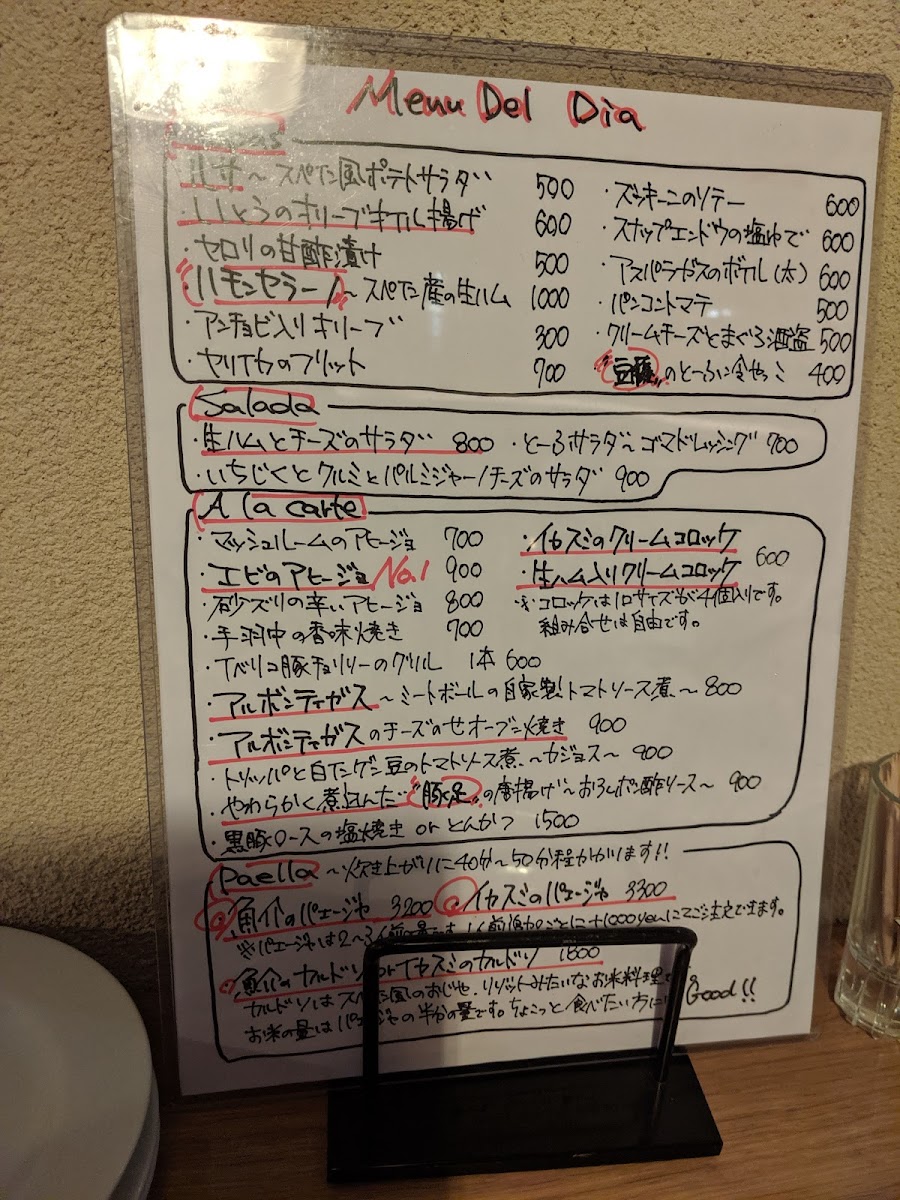 Menu Del Dia
ルサ～スペイン風ポテトサラダ 500
のオリーブオイル揚げ 600
・セロリの甘酢漬け 500
・"ハモンセラーノ"～スペイン産の生ハム 1000
・アンチョビ入りオリーブ 300
・ヤリイカのフリット 700
・ズッキーニのソテー 600
・スナップエンドウの塩ゆで 600
・アスパラガスのボイル(太) 600
・パンコントマテ 500
・クリームチーズとまぐろ酒盗 500
・"豆腐"のとーるに冷やっこ 400
Salada
・生ハムとチーズのサラダ 800 ・とーるサラダ～ゴマドレッシング 700
・いちじくとクルミとパルミジャーノチーズのサラダ 900
A la carte
・マッシュルームのアヒージョ 700
・エビのアヒージョ No.1 900
・砂ズリの辛いアヒージョ 800
・手羽中の香味焼き 700
・イベリコ豚チョリソーのグリル 1本 600
・イカスミのクリームコロッケ
・生ハム入りクリームコロッケ 600
※コロッケは1口サイズが4個入りです。
組み合せは自由です。
・アルボンディガス～ミートボールの自家製トマトソース煮～ 800
・アルボンディガスのチーズのせオーブン焼き 900
・トリッパと白インゲン豆のトマトソース煮～カジョス～ 900
・やわらかく煮込んだ"豚足"の唐揚げ～おろしポン酢ソース～ 900
・黒豚ロースの塩焼き or とんかつ 1500
Paella ～炊き上がりに40分～50分程かかります!!
魚介のパエージャ 3200 イカスミのパエージャ 3300
※パエージャは2～3人前の量です。1人前増加ごとに+1000yenにてご注文できます。
魚介のカルドソ or イカスミのカルドソ 1800
カルドソはスペイン風のおじや。リゾットみたいなお米料理
お米の量はパエージャの半分の量です。ちょこっと食べたい方に Good!!